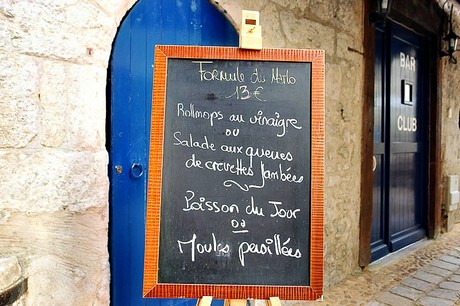 Formule du Milo
13€
Rollmops au vinaigre
ou
Salade aux queues
de crevettes flambées
Poisson du Jour
ou
Moules persillées
BAR
CLUB